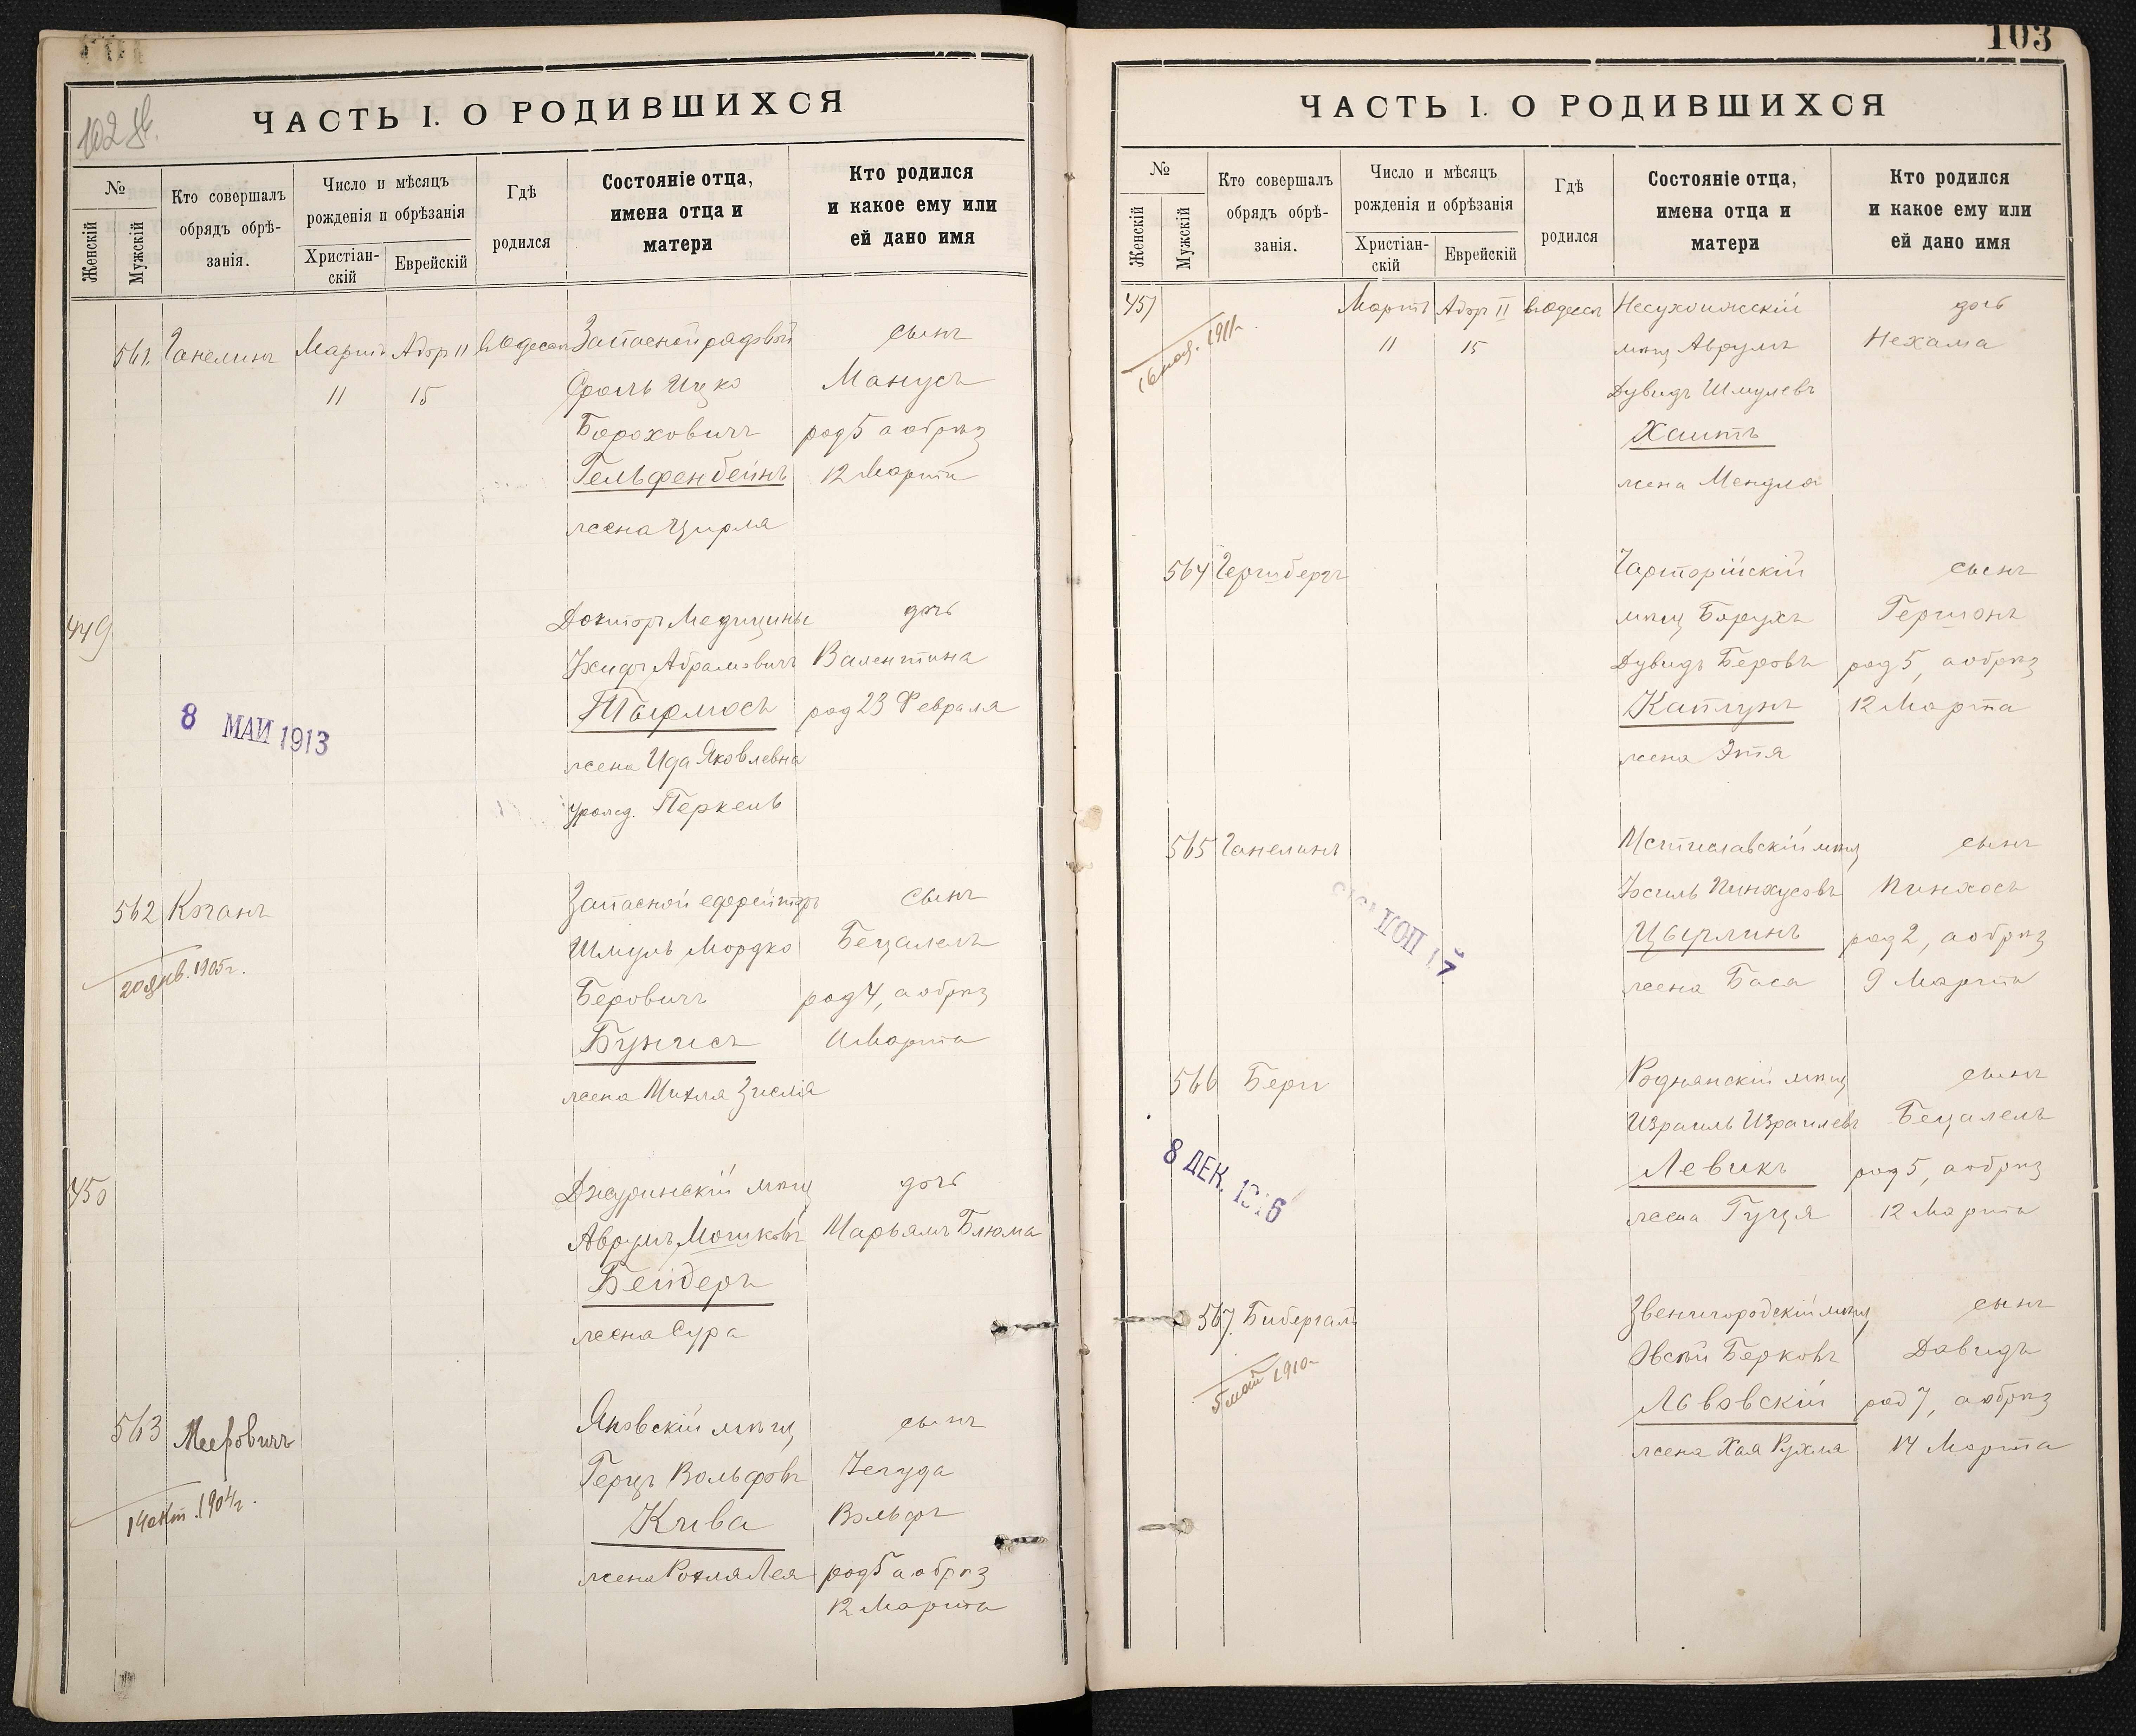 102 об.
ЧАСТЬ I. О РОДИВШИХСЯ
№
Женскій
Мужскій
Кто совершалъ
обрядъ обрѣ-
занія.
Число и мѣсяцъ
рожденія и обрѣзанія
Христіан-
скій
Еврейскій
Гдѣ
родился
Состояніе отца,
имена отца и
матери
Кто родился
и какое ему или
ей дано имя
561. Ганелинъ Мартъ Адоръ II въ Одессѣ Запасной рядовой сынъ
11 15 Сроль Ицко Манусъ
Бороховичъ род 5 а обрѣз
Гельфенбейнъ 12 Марта
жена Цирля
449 Докторъ Медицины дочь
Абрамовичъ Валентина
род 23 Февраля
8 МАИ 1913
жена Ида Яковлевна
урожд. Перкель
562 Коганъ Запасной ефрейторъ сынъ
Шмуль Мордко Бецалель
20 янв. 1905 г.
Беровичъ род 4, а обрѣз
Бунисъ 11 Марта
жена Михля Зисля
450 Джуринскій мѣщ дочь
Аврумъ Мошковъ Марьямъ Блюма
Бейдеръ
жена Сура
563 Мееровичъ Яновскій мѣщ сынъ
Герцъ Вольфовъ Іегуда
14 окт. 1904 г.
Кива Вольфъ
жена Рохля Лея род 5 а обрѣз
12 Марта
103
ЧАСТЬ I. О РОДИВШИХСЯ
№
Женскій
Мужскій
Кто совершалъ
обрядъ обрѣ-
занія.
Число и мѣсяцъ
рожденія и обрѣзанія
Христіан-
скій
Еврейскій
Гдѣ
родился
Состояніе отца,
имена отца и
матери
Кто родился
и какое ему или
ей дано имя
451 Мартъ Адоръ II въ Одессѣ Несухоижскій дочь
1911 г.
11 15 мѣщ Аврумъ Нехама
Дувидъ Шмулевъ
Хаитъ
жена Мендля
564 Герценбергъ Чарторійскій сынъ
мѣщ Борухъ Гершонъ
Дувидъ Беровъ род 5, а обрѣз
Каплунъ 12 Марта
жена Этя
565 Ганелинъ Мстиславскій мѣщ сынъ
Хсиль Пинхусовъ Пинхосъ
Цырлинъ род 2, а обрѣз
жена Бася 9 Марта
566 Бери Роднянскій мѣщ сынъ
Израиль Израилевъ Бецалель
8 ДЕК. 1916
Левикъ род 5, а обрѣз
жена 12 Марта
567 Бибергалъ Звенигородскій мѣщ сынъ
Овсѣй Берковъ Давидъ
5 май 1910 г.
Львовскій род 7, а обрѣз
жена Хая Рухля 14 Марта